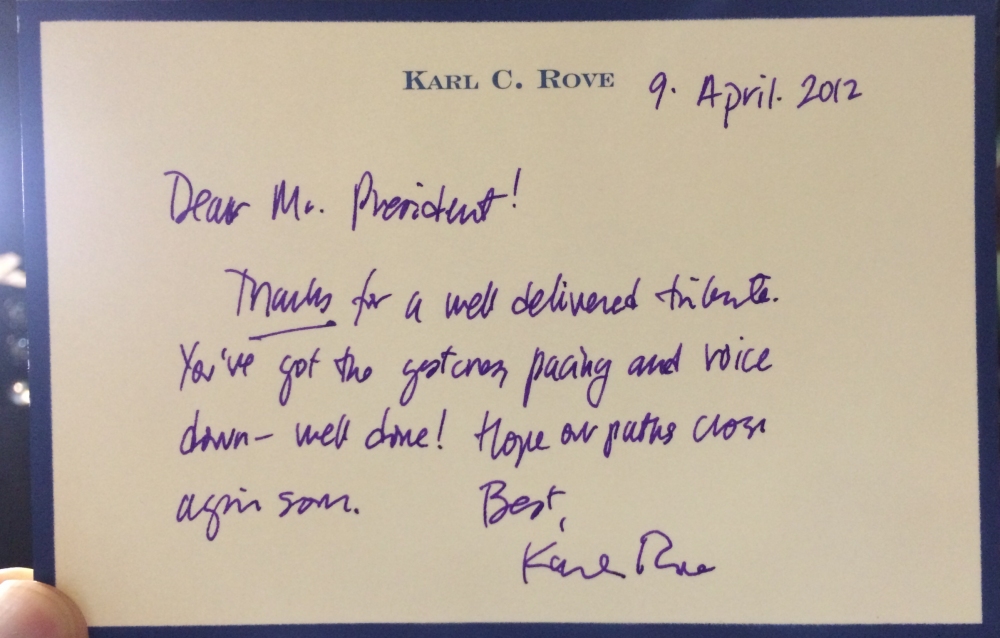 KARL C. ROVE 9. April. 2012
Dear Mr. President!
Thanks for a well delivered tribute.
You've got the gestures, pacing and voice
down - well done! Hope our paths cross
again soon. Best,
Karl Rove